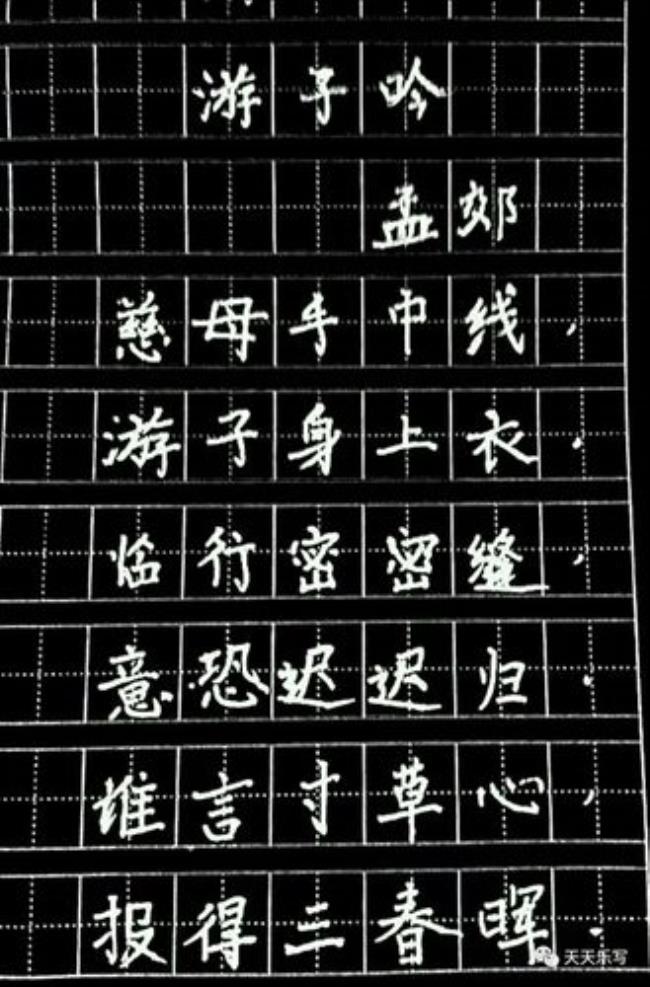 游子吟
孟郊
慈母手中线，
游子身上衣.
临行密密缝，
意恐迟迟归.
谁言寸草心，
报得三春晖.
天天乐写